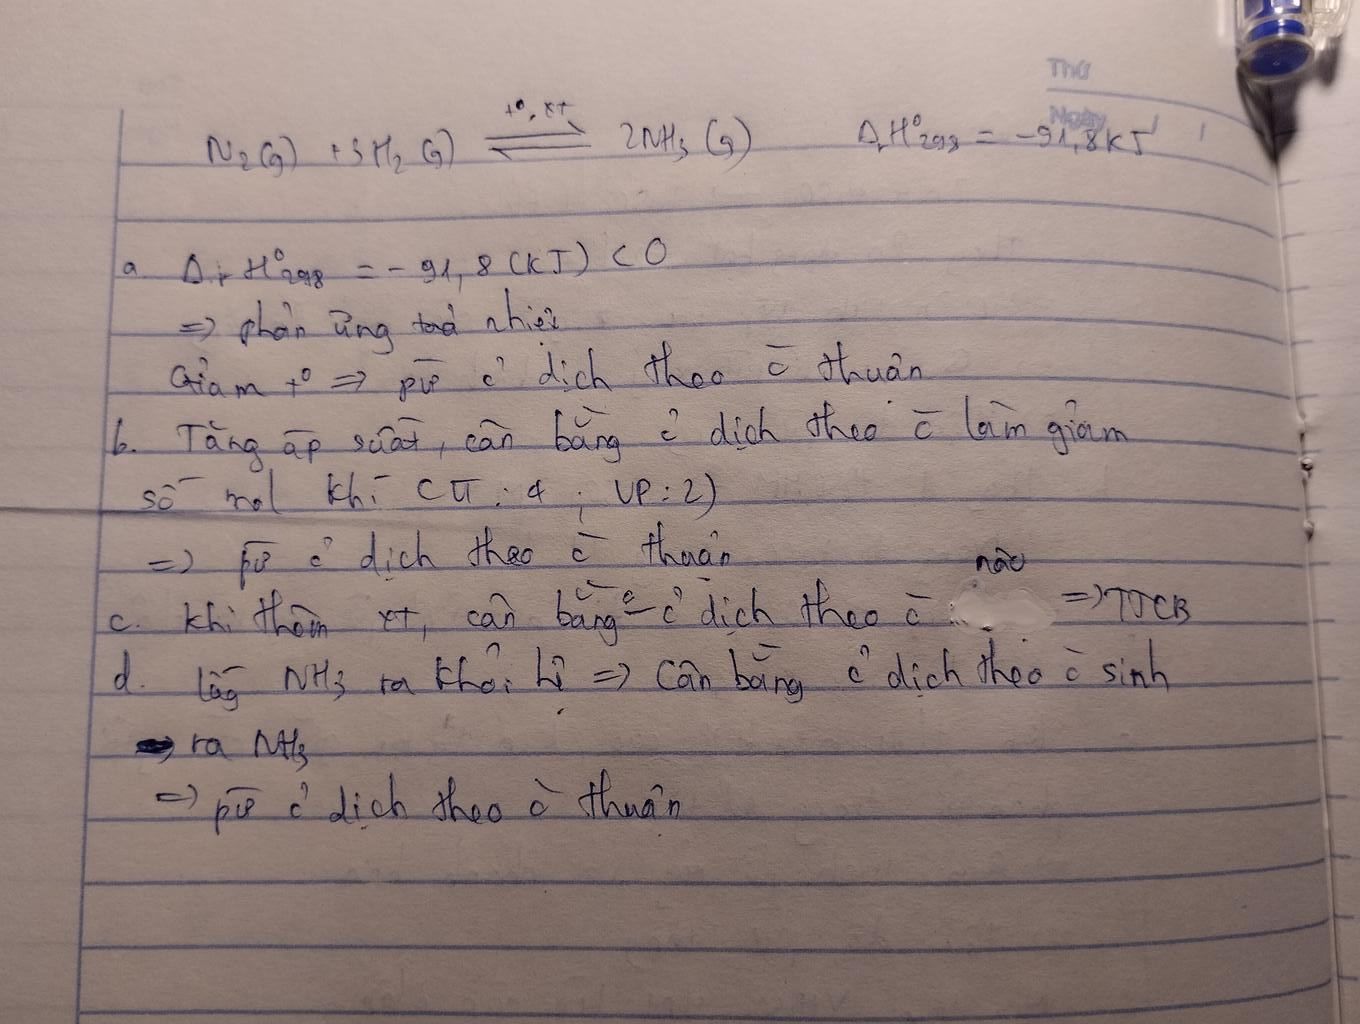 Thứ
Ngày
t°, xt
N₂(g) + 3H₂(g) ⇌ 2NH₃(g) ΔᵣH°₂₉₈ = -91,8kJ
a ΔᵣH°₂₉₈ = -91,8 (kJ) < 0
=> phản ứng toả nhiệt
Giảm t° => pứ c̉ dịch theo c̄ thuận
b. Tăng áp suất, cân bằng c̉ dịch theo c̄ làm giảm
số mol khí (TT: 4; VP: 2)
=> pứ c̉ dịch theo c̄ thuận
nào
c. khi thêm xt, cân bằng c̉ dịch theo c̄ => TTCB
d. lấy NH₃ ra khỏi hệ => Cân bằng c̉ dịch theo c̀ sinh
ra NH₃
=> pứ c̉ dịch theo c̀ thuận